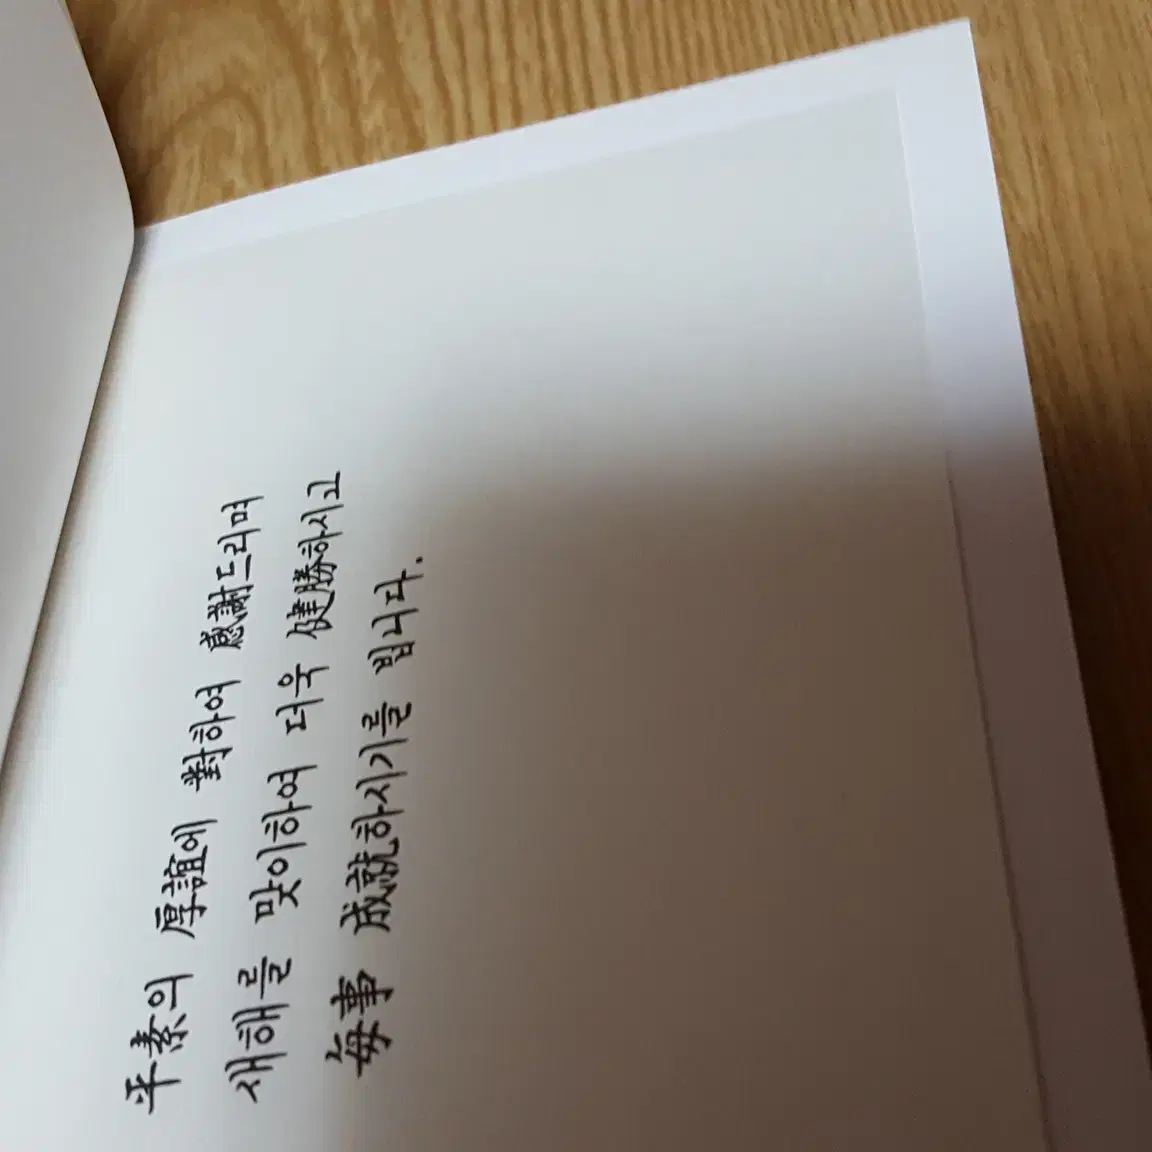 平素의 厚誼에 對하여 感謝드리며
새해를 맞이하여 더욱 健勝하시고
每事 成就하시기를 빕니다.